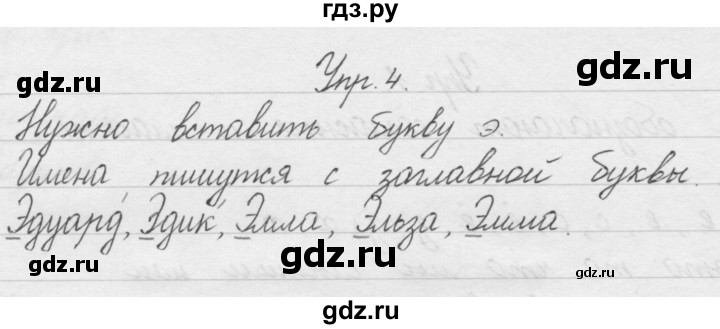 гдз.ру
gdz.ru
gdz.ru
Упр. 4.
Нужно вставить букву э.
gdz.ru
gdz.ru
Имена пишутся с заглавной буквы.
Эдуард, Эдик, Элла, Эльза, Эмма.
gdz.ru
gdz.ru
gdz.ru
gdz.ru